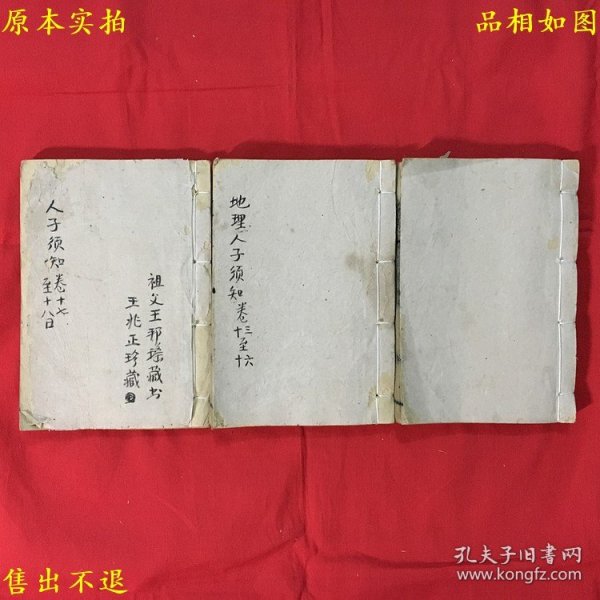 原本实拍
品相如图
人子须知卷十七
至十八
祖父王邦瑤藏书
王兆正珍藏
地理人子须知卷
十三至
十六
售出不退
孔夫子旧书网
www.kongfz.com